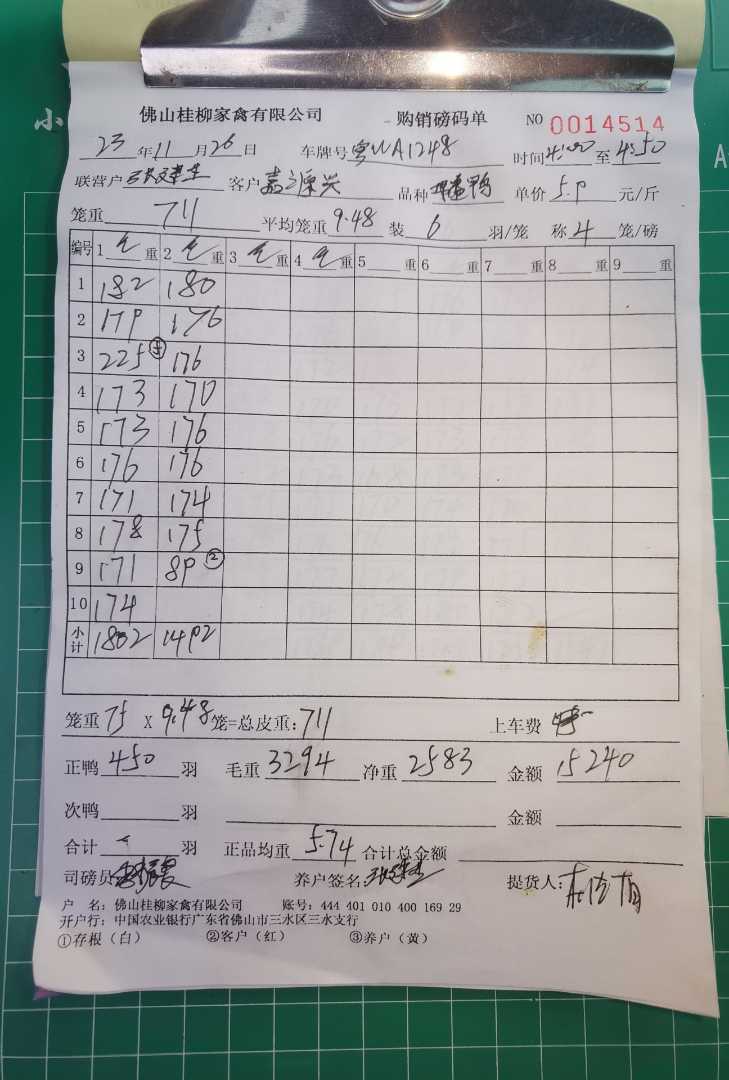 小
佛山桂柳家禽有限公司 购销磅码单 NO 0014514
23年11月26日 车牌号粤WA1248 时间4:00至4:50
联营户 张建生 客户嘉源兴 品种 鸭 单价5.9元/斤
笼重 711 平均笼重9.48 装 6 羽/笼 称4笼/磅
编号 1毛重 2毛重 3毛重 4毛重 5 重 6 重 7 重 8 重 9 重
1 182 180
2 179 176
3 225⑤ 176
4 173 170
5 173 176
6 176 176
7 171 174
8 178 175
9 171 89②
10 174
小计 1802 1492
笼重75 X 9.48笼=总皮重:711 上车费
正鸭450羽 毛重3294 净重2583 金额15240
次鸭 羽 金额
合计 羽 正品均重5.74 合计总金额
司磅员 养户签名: 提货人:
户 名:佛山桂柳家禽有限公司 账号:444 401 010 400 169 29
开户行:中国农业银行广东省佛山市三水区三水支行
①存根(白) ②客户(红) ③养户(黄)